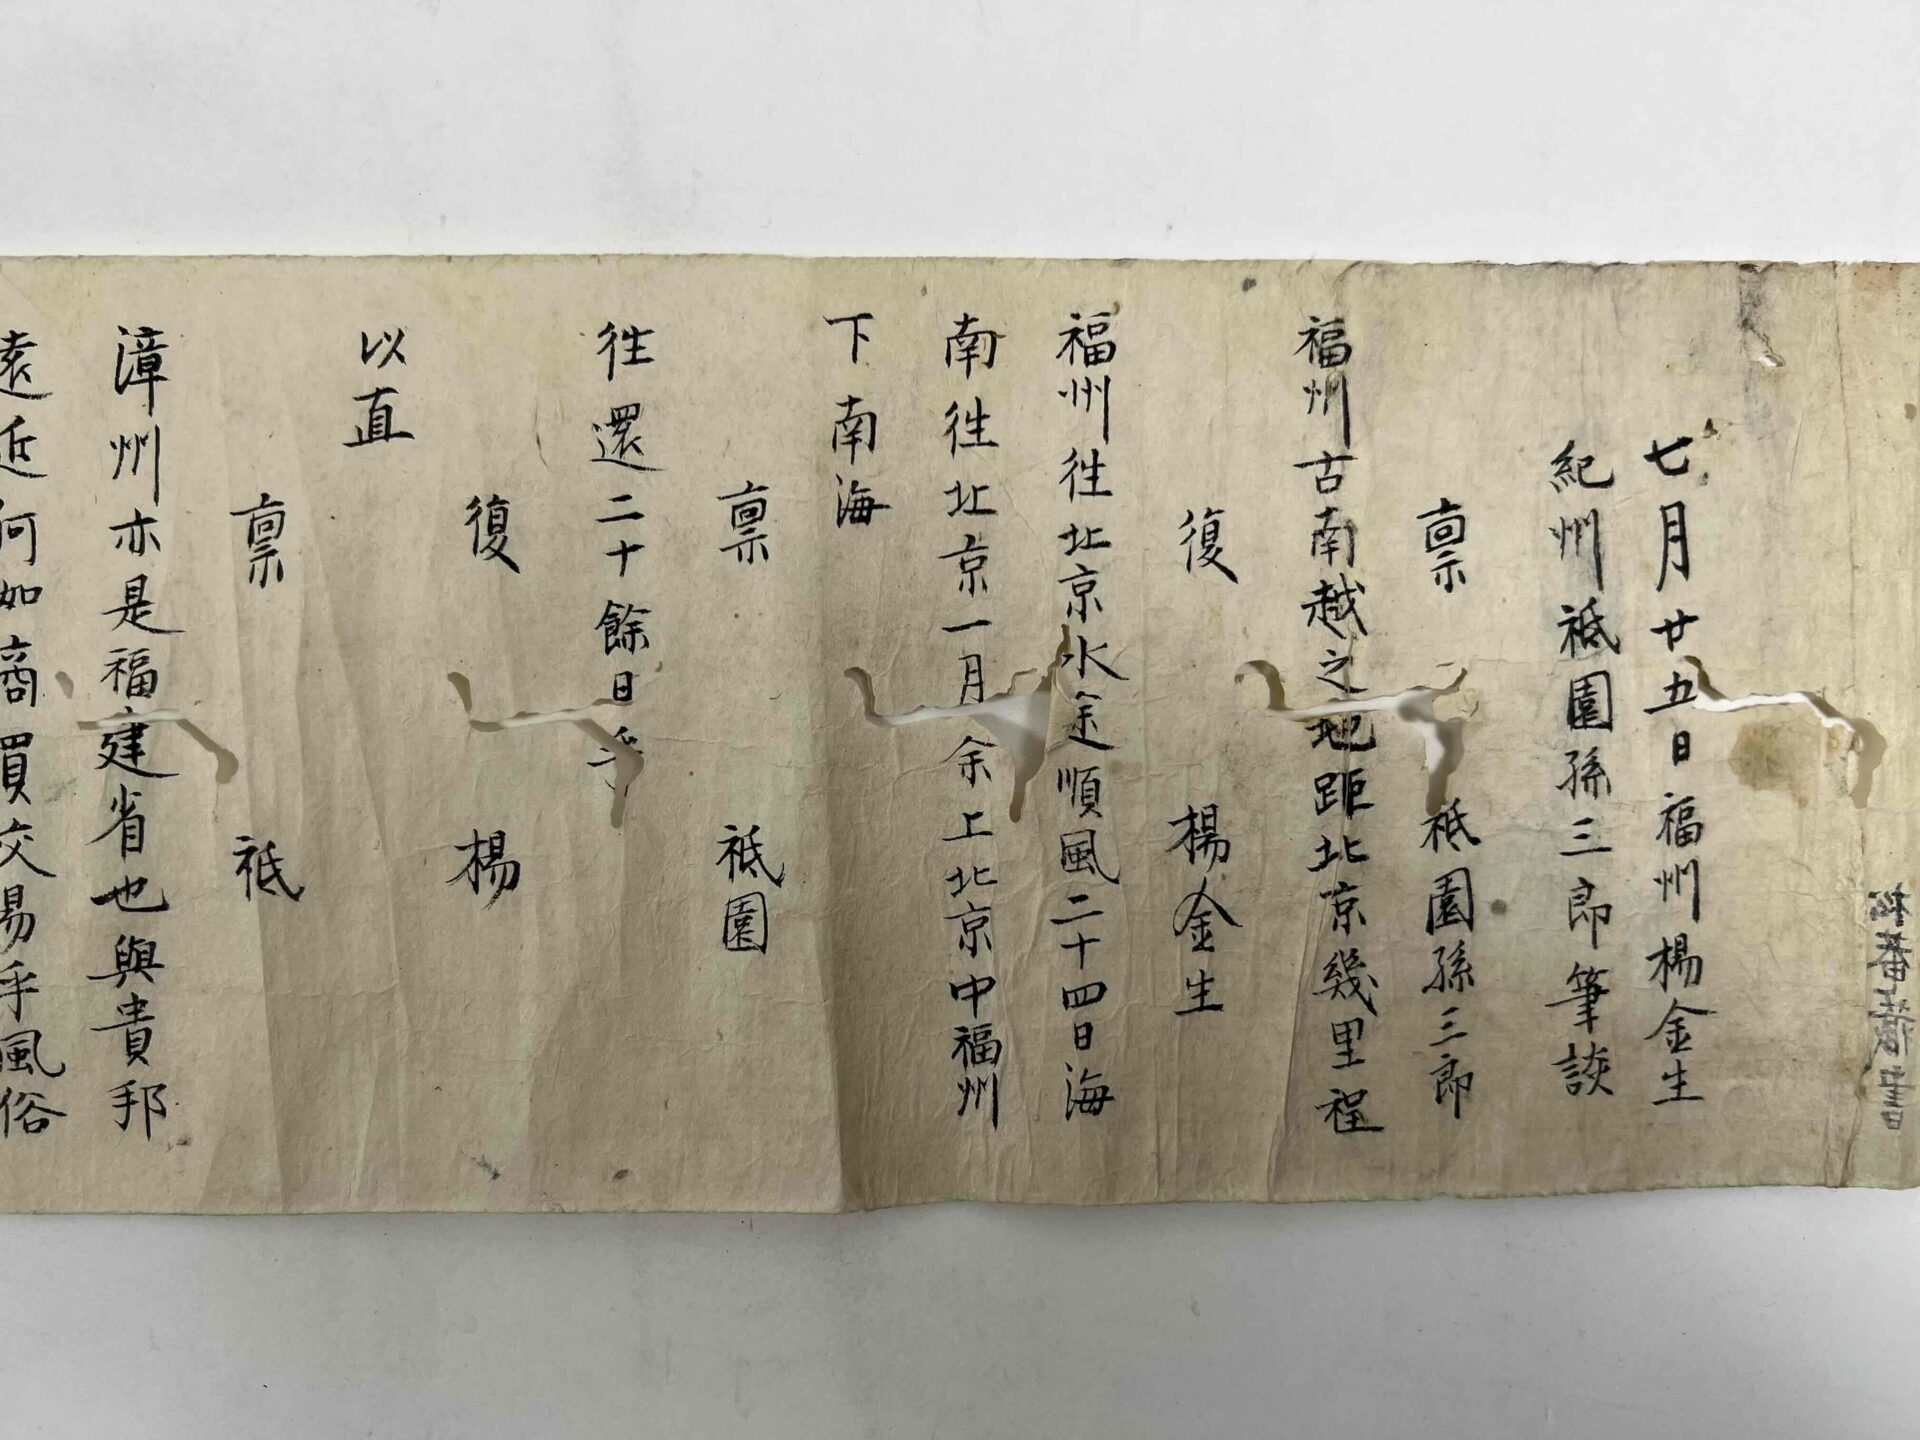 七月廿五日福州楊金生
紀州祗園孫三郎筆談
稟 祗園孫三郎
福州古南越之地距北京幾里程
復 楊金生
福州往北京水途順風二十四日海
南往北京一月余上北京中福州
下南海
稟 祗園
往還二十餘日乎
復 楊
以直
稟 祗
漳州亦是福建省也與貴邦
遠近何如商買交易乎風俗